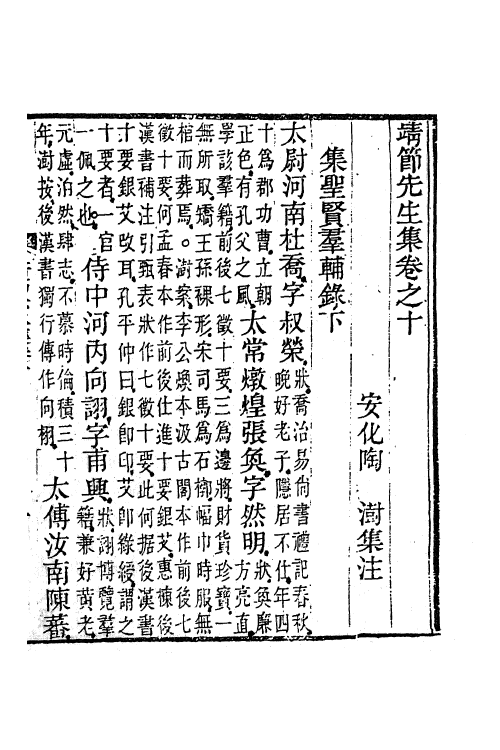 靖節先生集卷之十
安化陶　澍集注
集聖賢羣輔錄下
太尉河南杜喬字叔榮狀喬治易尚書禮記春秋
晚好老子隱居不仕年四
十爲郡功曹立朝
正色有孔父之風太常燉煌張奐字然明狀奐廉
方亮直
學該羣籍前後七徵十要三爲邊將財貨珍寶一
無所取矯王孫裸形宋司馬爲石槨幅巾時服無
棺而葬焉澍案李公煥本汲古閣本作前後七
徵十要何孟春本作前後仕進十要銀艾惠棟後
漢書補注引甄表狀作七徵十要此何据後漢書
十要銀艾改耳孔平仲曰銀即印艾即綠綬謂之
十要者一官
一佩之也侍中河内向詡字甫興狀詡博覽羣
籍兼好黄老
元虛泊然肆志不慕時倫積三十
年澍按後漢書獨行傳作向栩太傅汝南陳蕃